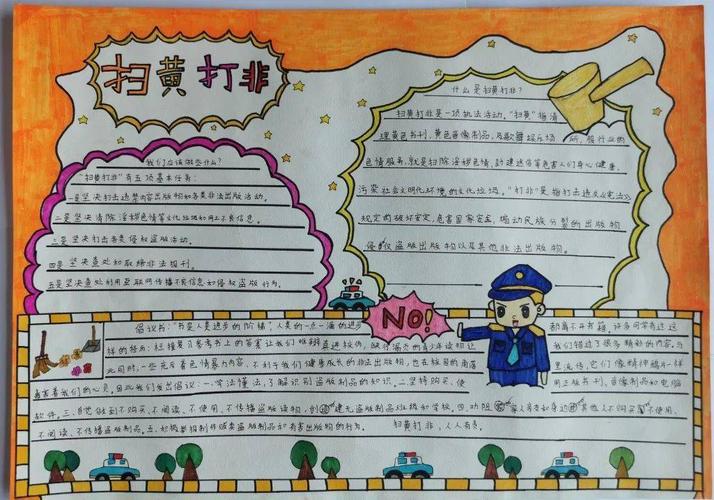 扫黄打非
我们应该做些什么?
"扫黄打非"有五项基本任务:
一是坚决打击违禁内容出版物和各类非法出版活动。
二是坚决清除淫秽色情等文化垃圾和网上不良信息。
三是坚决打击各类侵权盗版活动。
四是坚决查处和取缔非法报刊。
五是坚决查处利用互联网传播不良信息和侵权盗版行为。
什么是扫黄打非?
扫黄打非是一项执法活动,"扫黄"指清
理黄色书刊,黄色音像制品,及歌舞娱乐场所,服行业的
色情服务,就是扫除淫秽色情,封建迷信等危害人们身心健康,
污染社会文明化环境的文化垃圾,"打非"是指打击违反《宪法》
规定的破坏安定,危害国家安全,煽动民族分裂的出版物
侵权盗版出版物以及其他非法出版物。
NO!
倡议书:"书是人类进步的阶梯",人类的一点一滴的进步
都离不开书籍,许多同学有过这
样的经历:
考书上的答案让我们
我们错过了很多精彩的内容。与
此同时,一些充斥着色情暴力内容、不利于我们健康成长的非法出版物,也在校园的角落
里流传,它们像精神鸦片一样
毒害着我们的心灵,因此我们发出倡议:一.学法懂法,了解识别盗版制品的知识。二.坚持购买、使
用正版书刊、音像制品和电脑
软件。三.自觉做到不购买、不阅读、不使用、不传播盗版读物,创建无盗版制品班级和学校。四.劝阻
家人
其他人不购买、不使用、
不阅读、不传播盗版制品。五.积极举报制作贩卖盗版制品和有害出版物的行为。
扫黄打非,人人有责。